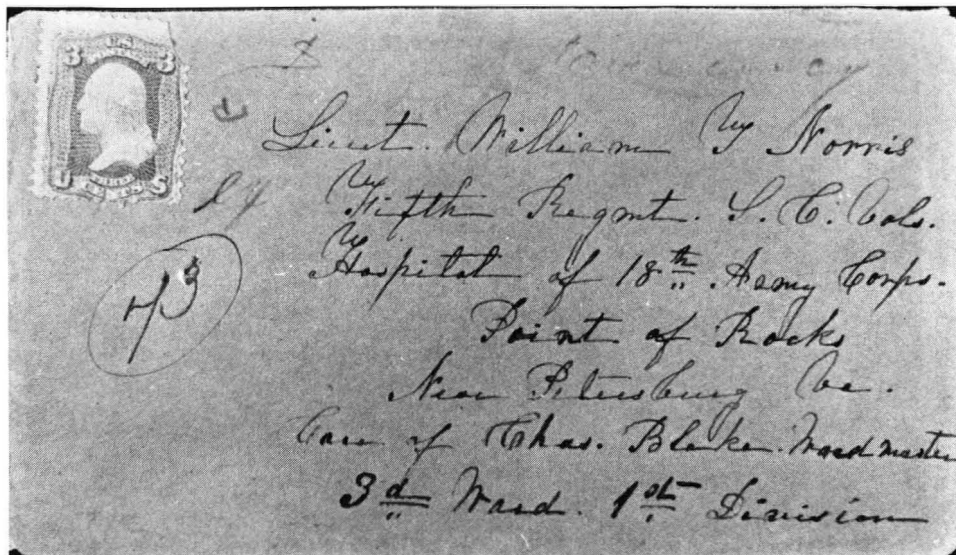 3 U.S. POSTAGE 3
THREE CENTS
Lieut. William Y Norris
Fifth Regmt. S. C. Vols.
Hospital of 18th Army Corps.
Point of Rocks
Near Petersburg Va.
Care of Chas. Blake. Wardmaster
3d Ward. 1st Division